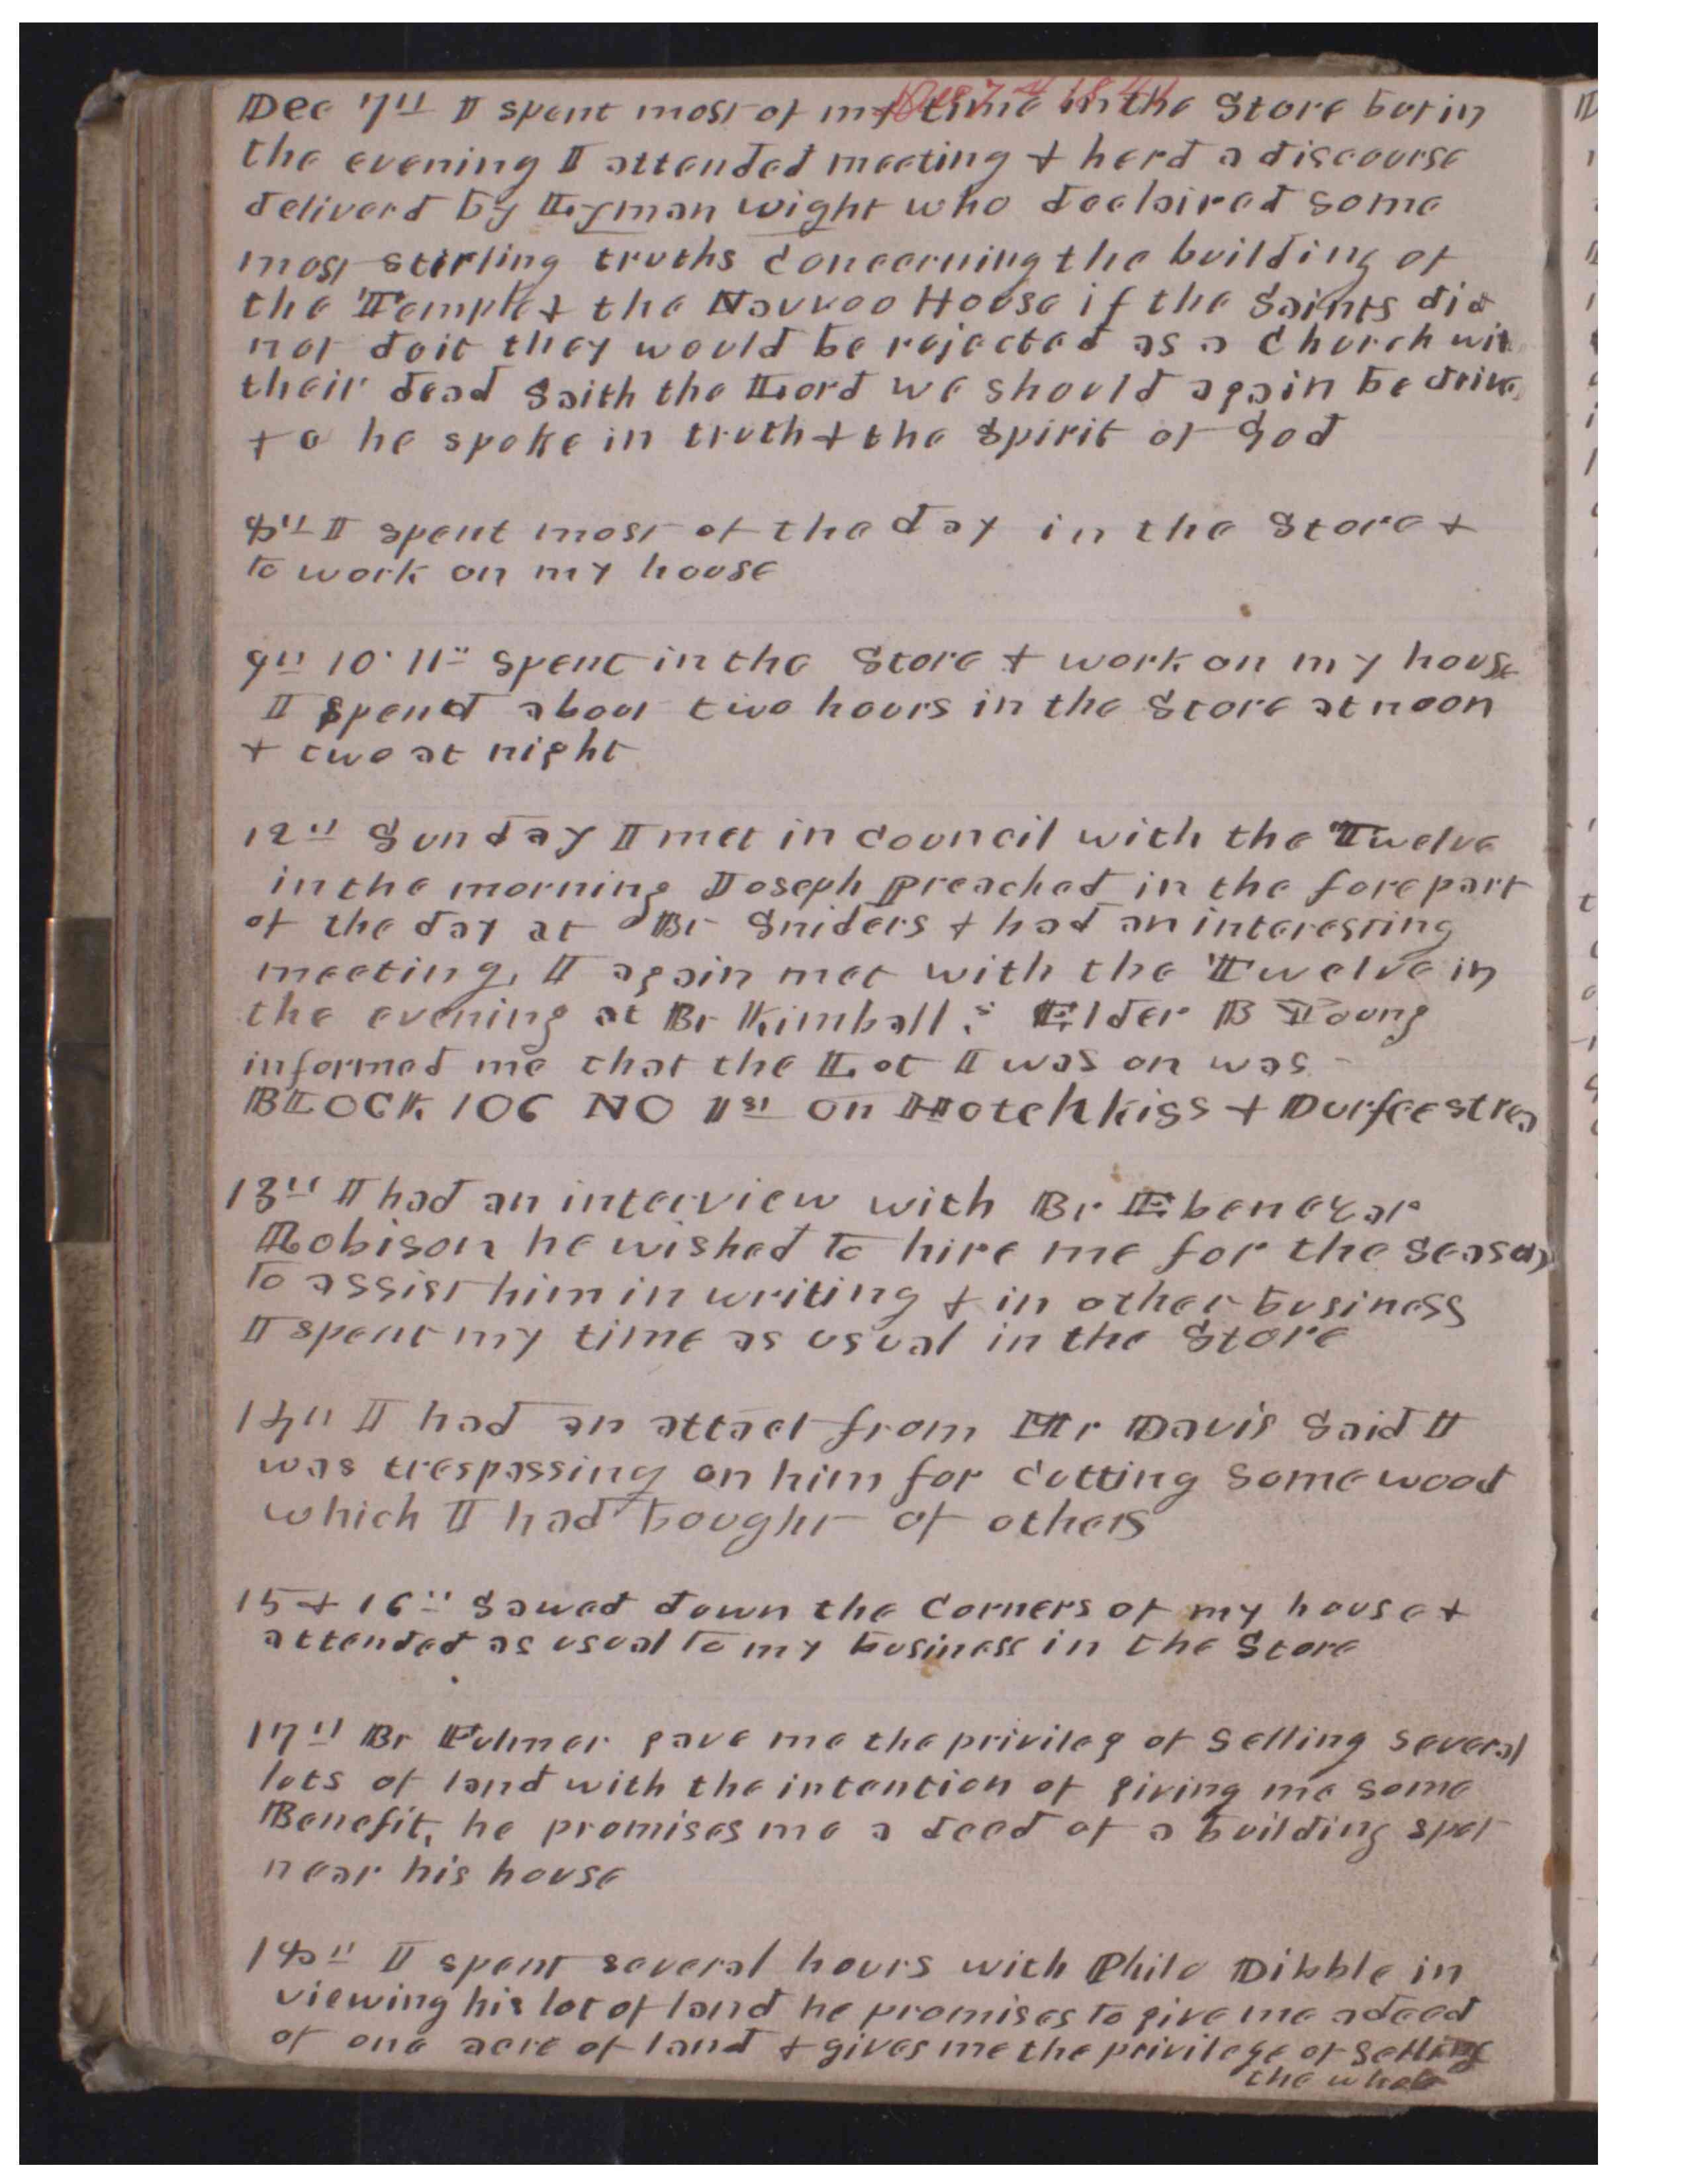 Dec 7th 1841
Dec 7th I spent most of my time in the Store but in
the evening I attended meeting & herd a discourse
deliverd by Lyman wight who declaired some
most stirling truths concerning the building of
the Temple & the Nauvoo House if the Saints did
not do it they would be rejected as a Church wit
their dead Saith the Lord we should again be drive
& c he spoke in truth & the Spirit of God
8th I spent most of the day in the Store &
to work on my house
9th 10. 11th spent in the Store & work on my house
I spend about two hours in the Store at noon
& two at night
12th Sunday I met in council with the Twelve
in the morning Joseph Preached in the forepart
of the day at Br Sniders & had an interesting
meeting, I again met with the Twelve in
the evening at Br Kimball's Elder B Young
informed me that the Lot I was on was
BLOCK 106 NO 1st on Hotchkiss & Durfee stree
13th I had an interview with Br Ebenezar
Robison he wished to hire me for the season
to assist him in writing & in other business
I spent my time as usual in the Store
14th I had an attact from Mr Davis Said I
was trespassing on him for cutting some wood
which I had bought of others
15 & 16th Sawed down the Corners of my house &
attended as usual to my business in the Store
17th Br Fulmer gave me the privileg of Selling several
lots of land with the intention of giving me some
Benefit, he promises me a deed of a building spot
near his house
18th I spent several hours with Philo Dibble in
viewing his lot of land he promises to give me a deed
of one acre of land & gives me the privilege of Selling
the whole